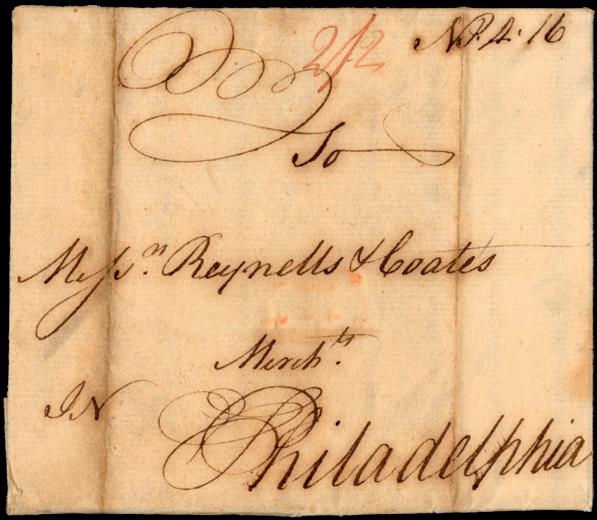 2/2
NP. 4. 16
To
Messrs. Reynells & Coates
Merchts.
IN
Philadelphia